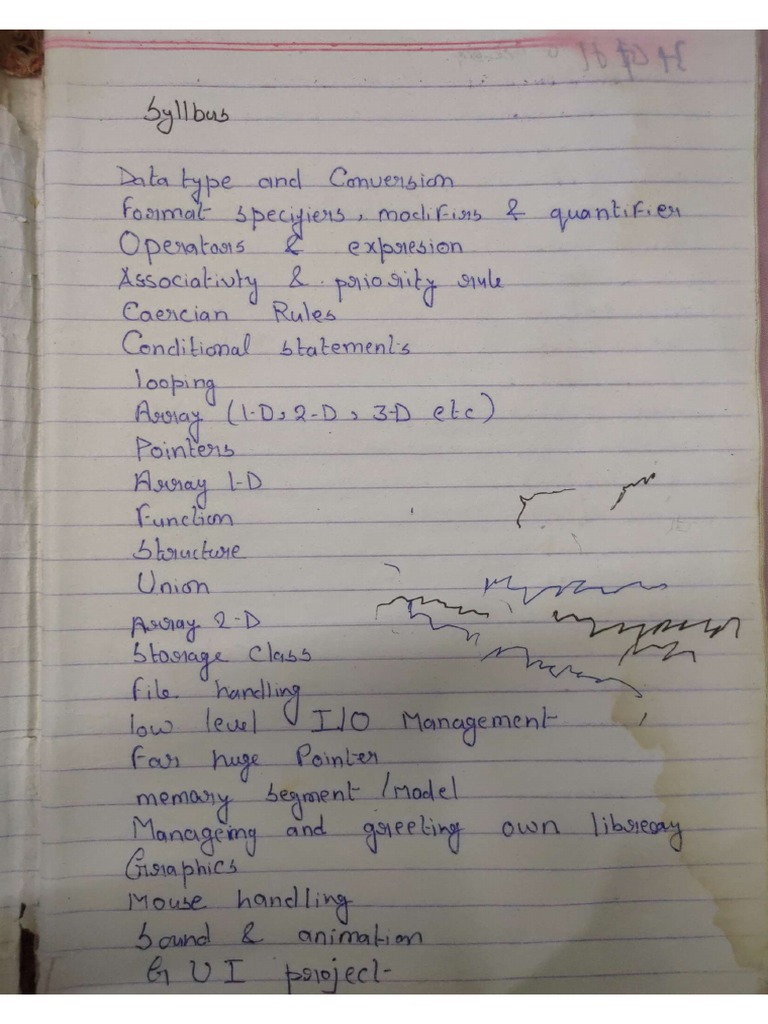 Syllbus
Data type and Conversion
Format specifiers, modifirs & quantifier
Operators & expresion
Associativty & priority rule
Caercian Rules
Conditional statements
looping
Array (1-D, 2-D, 3-D etc)
Pointers
Array 1-D
Function
Structure
Union
Array 2-D
Storage Class
File handling
low level I/O Management
Far huge Pointer
memory segment /Model
Manageing and greeting own libreray
Graphics
Mouse handling
Sound & animation
G U I project